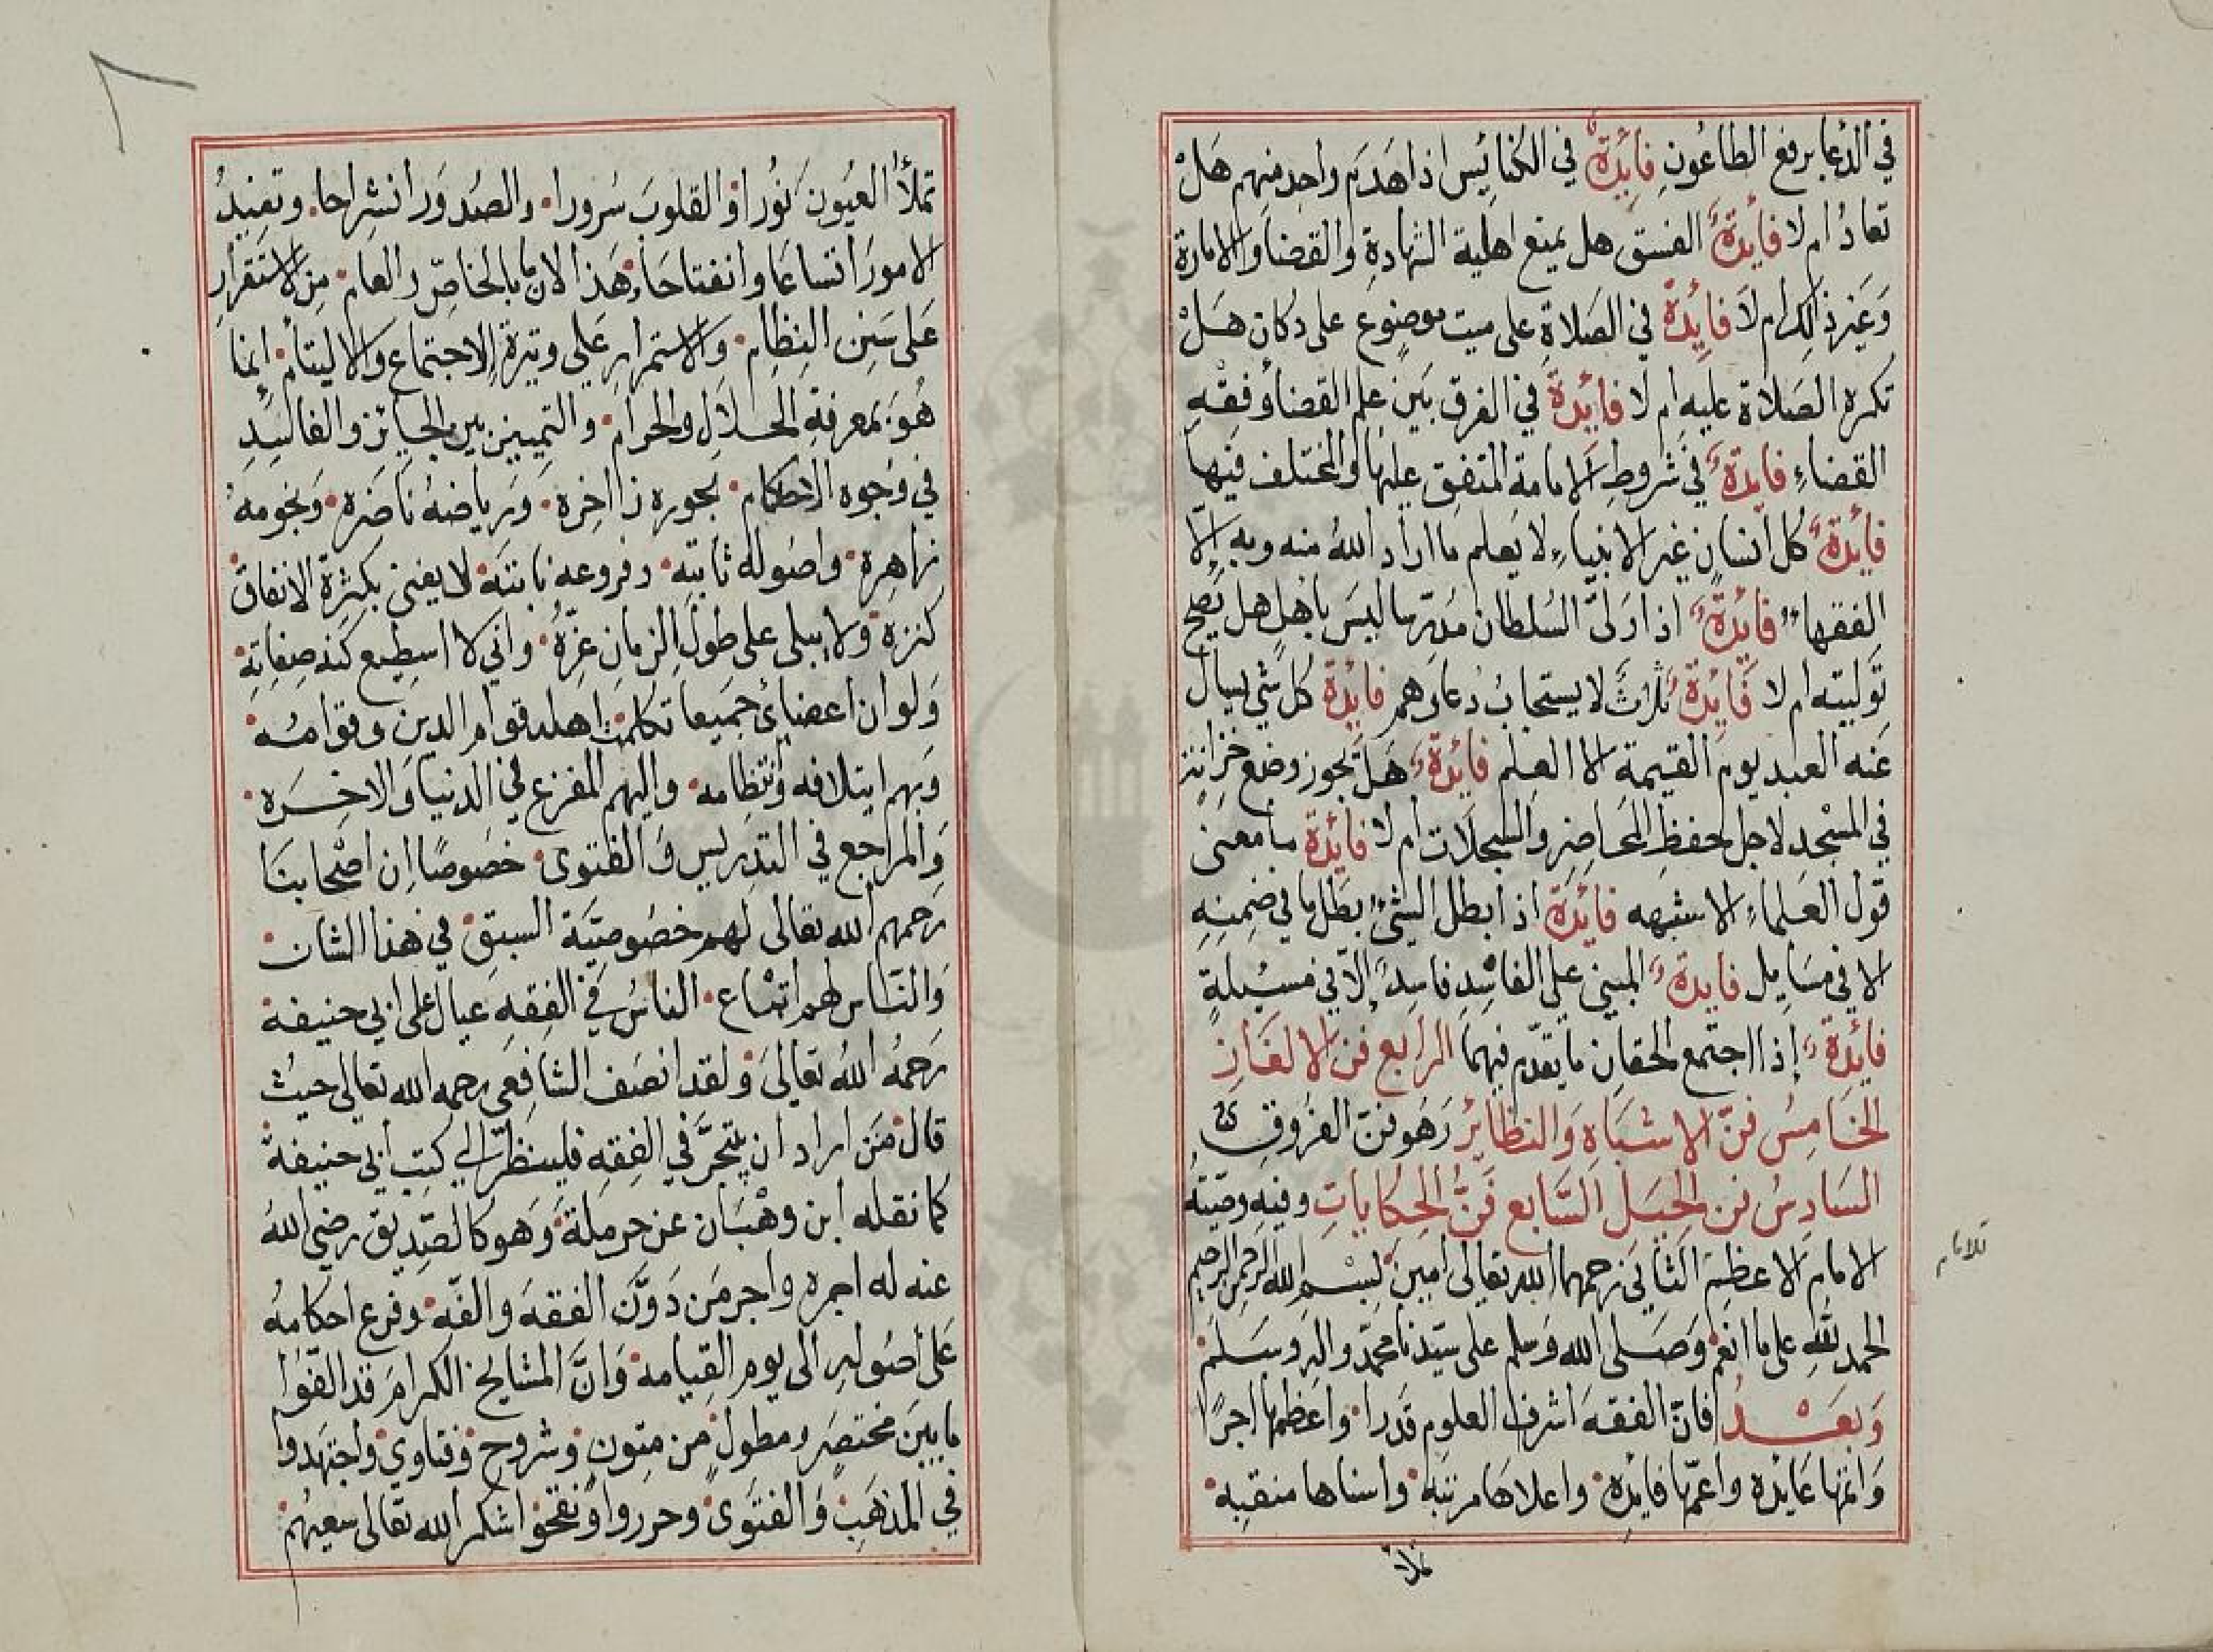 في الدعا برفع الطاعون فائدة في الكنائس اذا هدم واحد منهم هل
تعاد ام لا فائدة الفسق هل يمنع اهلية الشهادة والقضا والامارة
وغير ذلك ام لا فايدة في الصلاة على ميت موضوع على دكان هل
تكره الصلاة عليه ام لا فايدة في الفرق بين علم القضا وفقه
القضاء فايدة في شروط الامامة المتفق عليها والمختلف فيها
فائدة كل انسان غير الانبياء لا يعلم ما اراد الله منه وبه الّا
الفقهاء فائدة اذا ولى السلطان مدرسا ليس باهل هل يصح
توليته ام لا فائدة ثلاث لا يستجاب دعاوهم فائدة كل شي يسال
عنه العبد يوم القيمة الا العلم فائدة هل تجوز وضع خزانتر
في المسجد لاجل حفظ المحاضر والسجلات ام لا فائدة ما معنى
قول العلماء الاشبهه فائدة اذا بطل الشئ بطل ما في ضمنه
الا في مسايل فايدة المبني على الفاسد فاسد إلّا في مسيلة
فائدة إذا اجتمع الحقان ما يقدم فيهما الرابع فن الالغاز
الخامس فنّ الاشباه والنظائر وهو فن الفروق
السادس فن الحيل السابع فنّ الحكايات وفيه وصيته
الامام الاعظم الثاني رحمهما الله تعالى امين بسم الله الرحمن الرحيم
للامام
الحمد لله على ما انعم وصلى الله وسلم على سيدنا محمد واله وسلم
وبعد فان الفقه اشرف العلوم قدرا واعظمها اجرًا
واتمها عايده واعمّها فايده واعلاها مرتبة واسناها منقبه
تملا
تملأ العيون نورا والقلوب سرورا والصدور انشراحا وتفيد
الامور اتساعا وانفتاحا هذا لان ما بالخاص والعام من الاستقرار
على سنن النظام والاستمرار على وتيرة الاجتماع والالتيام إنما
هو بمعرفة الحلال والحرام والتمييز بين الجائز والفاسد
في وجوه الاحكام بحوره زاخره ورياضه ناضره ونجومه
زاهرة واصوله ثابتة وفروعه نابتة لا يفنى بكثرة الانفاق
كنزه ولا يبلى على طول الزمان عزّه واني لا اسطيع كنه صفاته
ولو ان اعضائ جميعا تكلمت اهله قوام الدين وقوامه
وبهم ايتلافه وانتظامه واليهم المفزع في الدنيا والاخره
والمراجع في التدريس والفتوى خصوصا ان اصحابنا
رحمهم الله تعالى لهم خصوصيّة السبق في هذا الشان
والناس لهم اتباع الناس في الفقه عيال على ابي حنيفة
رحمه الله تعالى ولقد انصف الشافعي رحمه الله تعالى حيث
قال من اراد ان يتبحر في الفقه فلينظر الى كتب ابي حنيفة
كما نقله ابن وهبان عن حرملة وهو كالصديق رضي الله
عنه له اجره واجر من دوّن الفقه والفه وفرع احكامه
على اصوله الى يوم القيامة وانّ المشايخ الكرام قد الفوا
ما بين مختصر ومطول من متون وشروح وفتاوى واجتهدوا
في المذهب والفتوى وحرروا ونقحوا شكر الله تعالى سعيهم